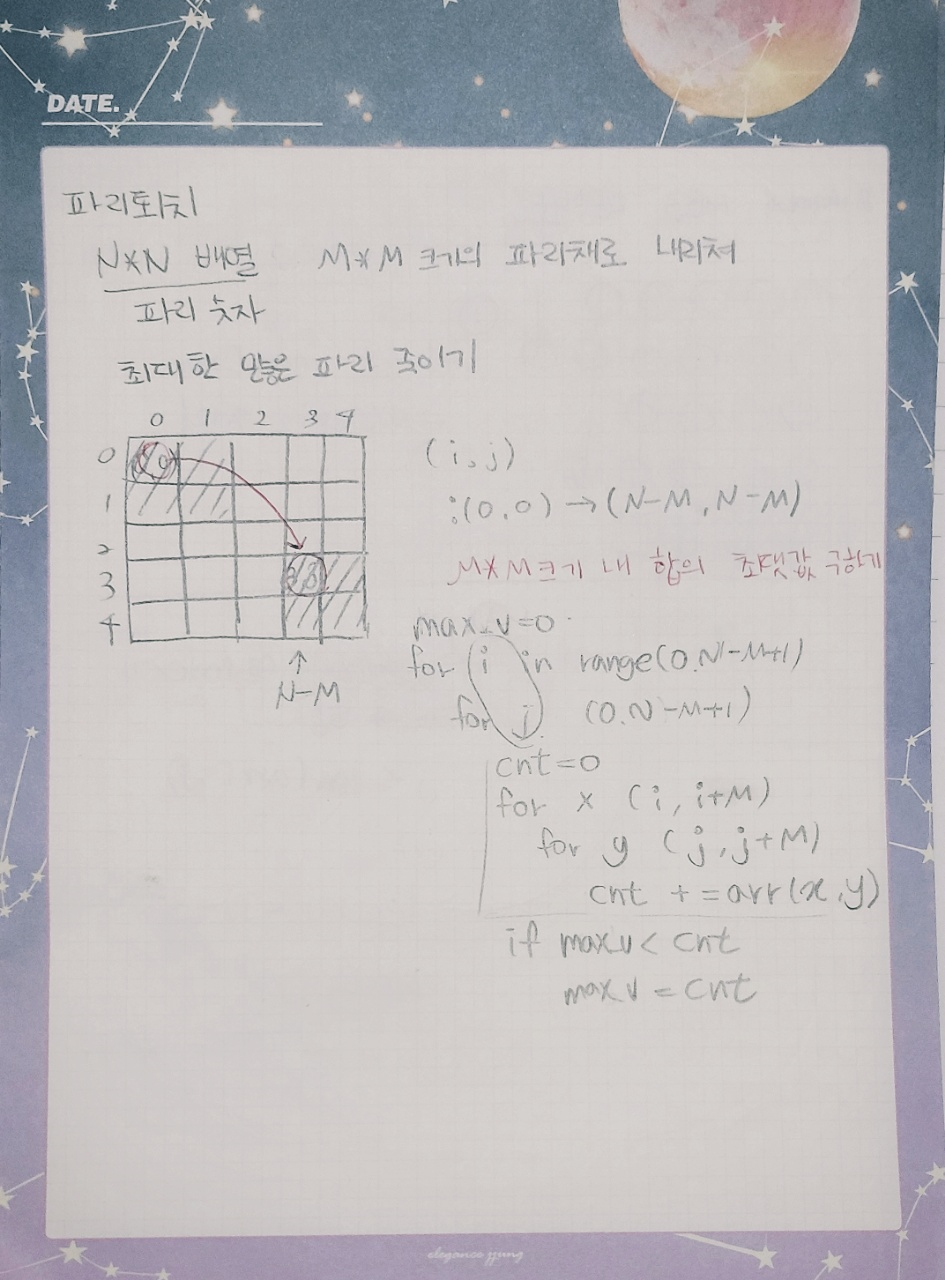 DATE.
파리퇴치
N*N 배열 M*M 크기의 파리채로 내리쳐
파리 숫자
최대한 많은 파리 죽이기
0 1 2 3 4
0
1
2
3
4
0,0
3,3
↑
N-M
(i, j)
:(0,0) → (N-M, N-M)
M*M크기 내 합의 최댓값 구하기
max_v=0
for i in range(0.N-M+1)
for j (0.N-M+1)
cnt=0
for x (i, i+M)
for y (j, j+M)
cnt += arr(x,y)
if max_v < cnt
max_v = cnt
elegance jjung